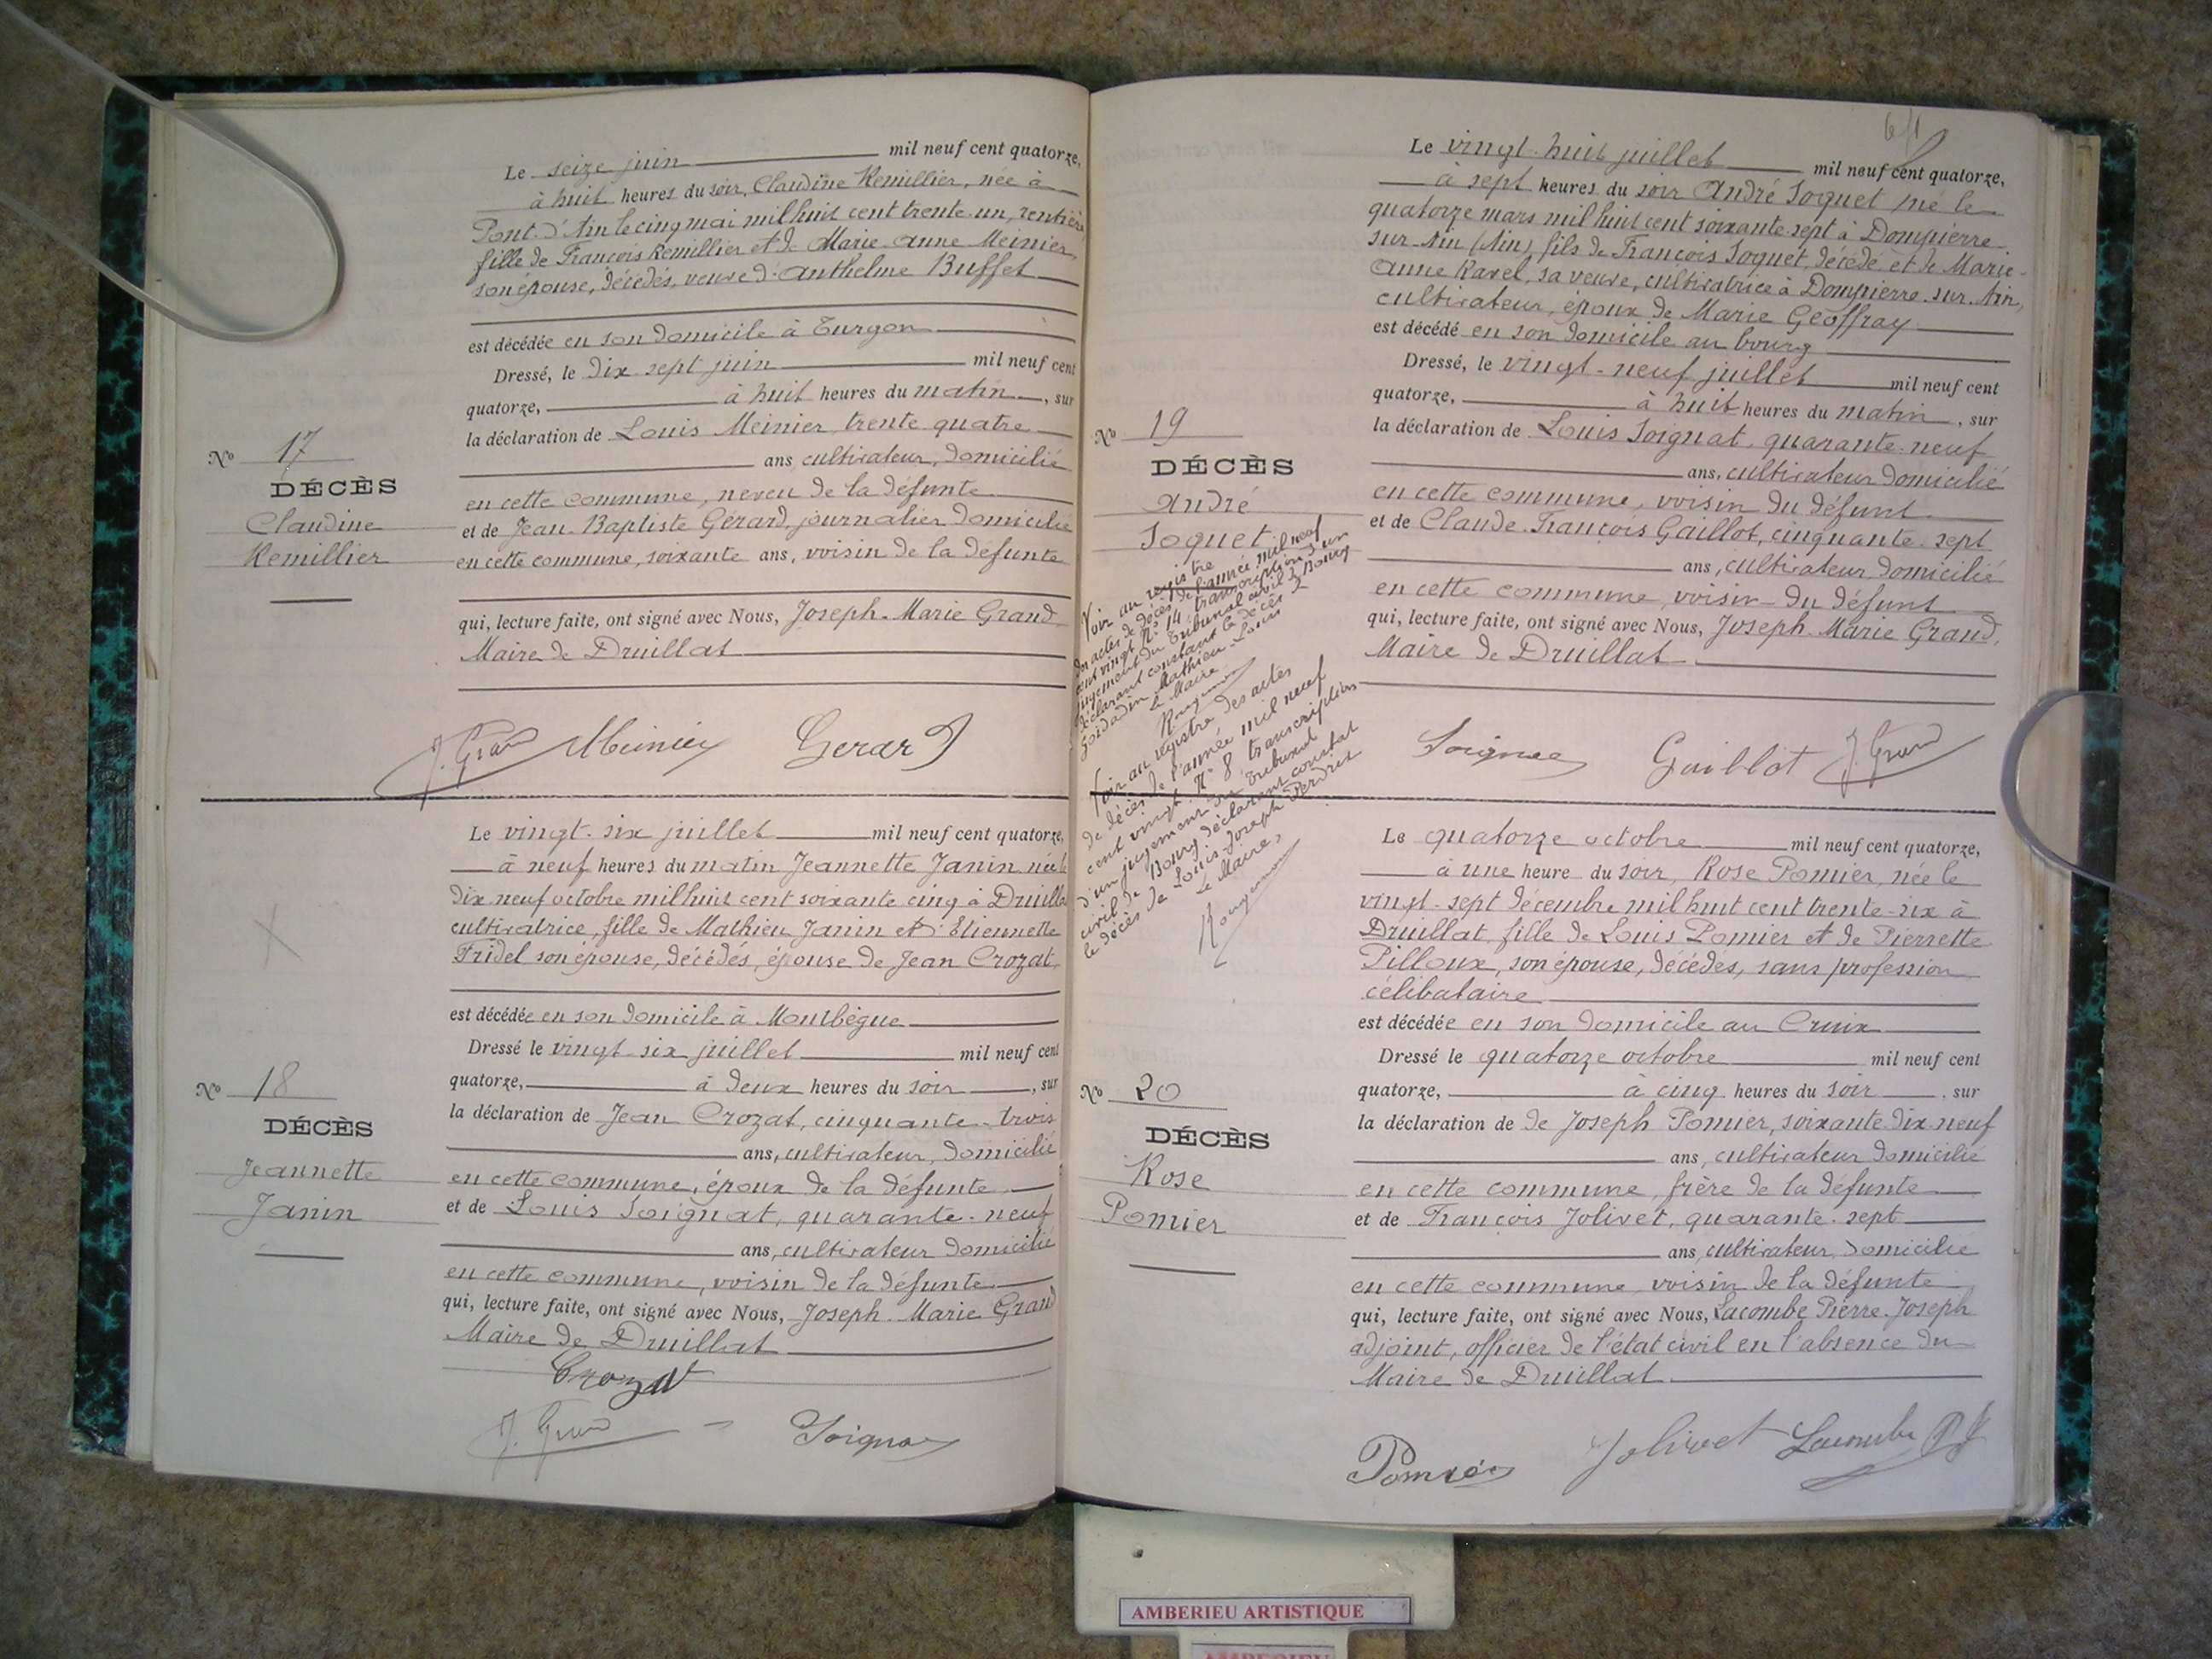 Le seize juin mil neuf cent quatorze,
à huit heures du soir, Claudine Remillier, née à
Pont-d'Ain le cinq mai mil huit cent trente un, rentière
fille de François Remillier et de Marie-Anne Meinier,
son épouse, décédés, veuve d'Anthelme Buffet
est décédée en son domicile à Turgon
Dressé, le dix sept juin mil neuf cent
quatorze, à huit heures du matin, sur
la déclaration de Louis Meinier, trente quatre
ans, cultivateur, domicilié
en cette commune, neveu de la défunte
et de Jean-Baptiste Gérard, journalier domicilié
en cette commune, soixante ans, voisin de la défunte
qui, lecture faite, ont signé avec Nous, Joseph-Marie Grand
Maire de Druillat
No 17
DÉCÈS
Claudine
Remillier
J. Grand Meinier Gerard
Le vingt-six juillet mil neuf cent quatorze,
à neuf heures du matin Jeannette Janin née le
dix neuf octobre mil huit cent soixante cinq à Druillat
cultivatrice, fille de Mathieu Janin et d'Etiennette
Fridel son épouse, décédés, épouse de Jean Crozat,
est décédée en son domicile à Montbègue
Dressé le vingt-six juillet mil neuf cent
quatorze, à deux heures du soir, sur
la déclaration de Jean Crozat, cinquante-trois
ans, cultivateur, domicilié
en cette commune, époux de la défunte
et de Louis Soignat, quarante-neuf
ans, cultivateur domicilié
en cette commune, voisin de la défunte
qui, lecture faite, ont signé avec Nous, Joseph-Marie Grand
Maire de Druillat
No 18
DÉCÈS
Jeannette
Janin
Crozat
J. Grand Soignat
Le vingt-huit juillet mil neuf cent quatorze,
à sept heures du soir André Soquet né le
quatorze mars mil huit cent soixante-sept à Dompierre-
sur-Ain (Ain), fils de François Soquet, décédé et de Marie-
Anne Ravel, sa veuve, cultivatrice à Dompierre-sur-Ain,
cultivateur, époux de Marie Geoffray
est décédé en son domicile au bourg
Dressé, le vingt-neuf juillet mil neuf cent
quatorze, à huit heures du matin, sur
la déclaration de Louis Soignat, quarante-neuf
ans, cultivateur domicilié
en cette commune, voisin du défunt
et de Claude-François Gaillot, cinquante-sept
ans, cultivateur domicilié
en cette commune, voisin du défunt
qui, lecture faite, ont signé avec Nous, Joseph-Marie Grand,
Maire de Druillat
No 19
DÉCÈS
André
Soquet
Voir au registre
des actes de décès de l'année mil neuf
cent vingt N° 14 transcription d'un
jugement du Tribunal civil de Bourg
déclarant constant le décès de
Mathieu Louis
Le Maire
Voir au registre des actes
de décès de l'année mil neuf
cent vingt N° 8 transcription
d'un jugement du Tribunal
civil de Bourg déclarant constat
le décès de Louis-Joseph Perdrix
Le Maire,
Soignat Gaillot J. Grand
Le quatorze octobre mil neuf cent quatorze,
à une heure du soir, Rose Pomier, née le
vingt-sept décembre mil huit cent trente-six à
Druillat, fille de Louis Pomier et de Pierrette
Pilloux, son épouse, décédés, sans profession
célibataire
est décédée en son domicile au Creux
Dressé le quatorze octobre mil neuf cent
quatorze, à cinq heures du soir, sur
la déclaration de de Joseph Pomier, soixante-dix-neuf
ans, cultivateur domicilié
en cette commune, frère de la défunte
et de François Jolivet, quarante-sept
ans, cultivateur, domicilié
en cette commune, voisin de la défunte
qui, lecture faite, ont signé avec Nous, Lacombe Pierre-Joseph
adjoint, officier de l'état civil en l'absence du
Maire de Druillat
No 20
DÉCÈS
Rose
Pomier
Pomier Jolivet Lacombe P J
AMBERIEU ARTISTIQUE